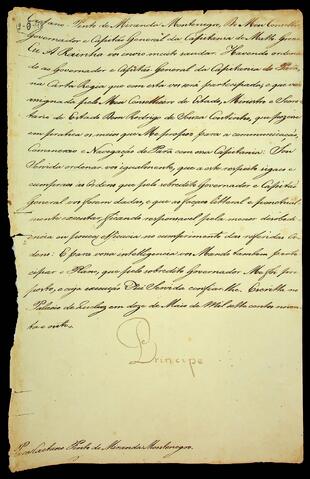 Caetano Pinto de Miranda Montenegro, Do Meu Conselho
Governador e Capitaõ General da Capitania de Matto Grosso
Eu A Rainha vos envio muito saudar. Havendo ordenado
ao Governador e Capitaõ General da Capitania do Pará,
na Carta Regia que com esta vos será participada, e que vai
assignada pelo Meu Conselheiro de Estado, Ministro e Secre-
tario de Estado Dom Rodrigo de Souza Coutinho, que puzesse
em pratica os meios que Me propoz para a communicaçaõ,
Commercio e Navegaçaõ do Pará com essa Capitania: Sou
Servida ordenar vos igualmente, que a este respeito sigaes e
cumpraes as ordens que pelo sobredito Governador e Capitaõ
General vos foram dadas, e que as façaes litteral e punctual
mente executar, ficando responsavel pela menor desobedi-
encia ou pouca efficacia no cumprimento das referidas Or-
dens: E para vossa intelligencia vos Mando tambem parti-
cipar o Plano, que pelo sobredito Governador Me foi pro
posto, e cuja execuçaõ Fui Servida confiar-lhe. Escritta no
Palacio de Queluz em doze de Maio de Mil sette centos noven
ta e oito.
Principe
Para Caetano Pinto de Miranda Montenegro.